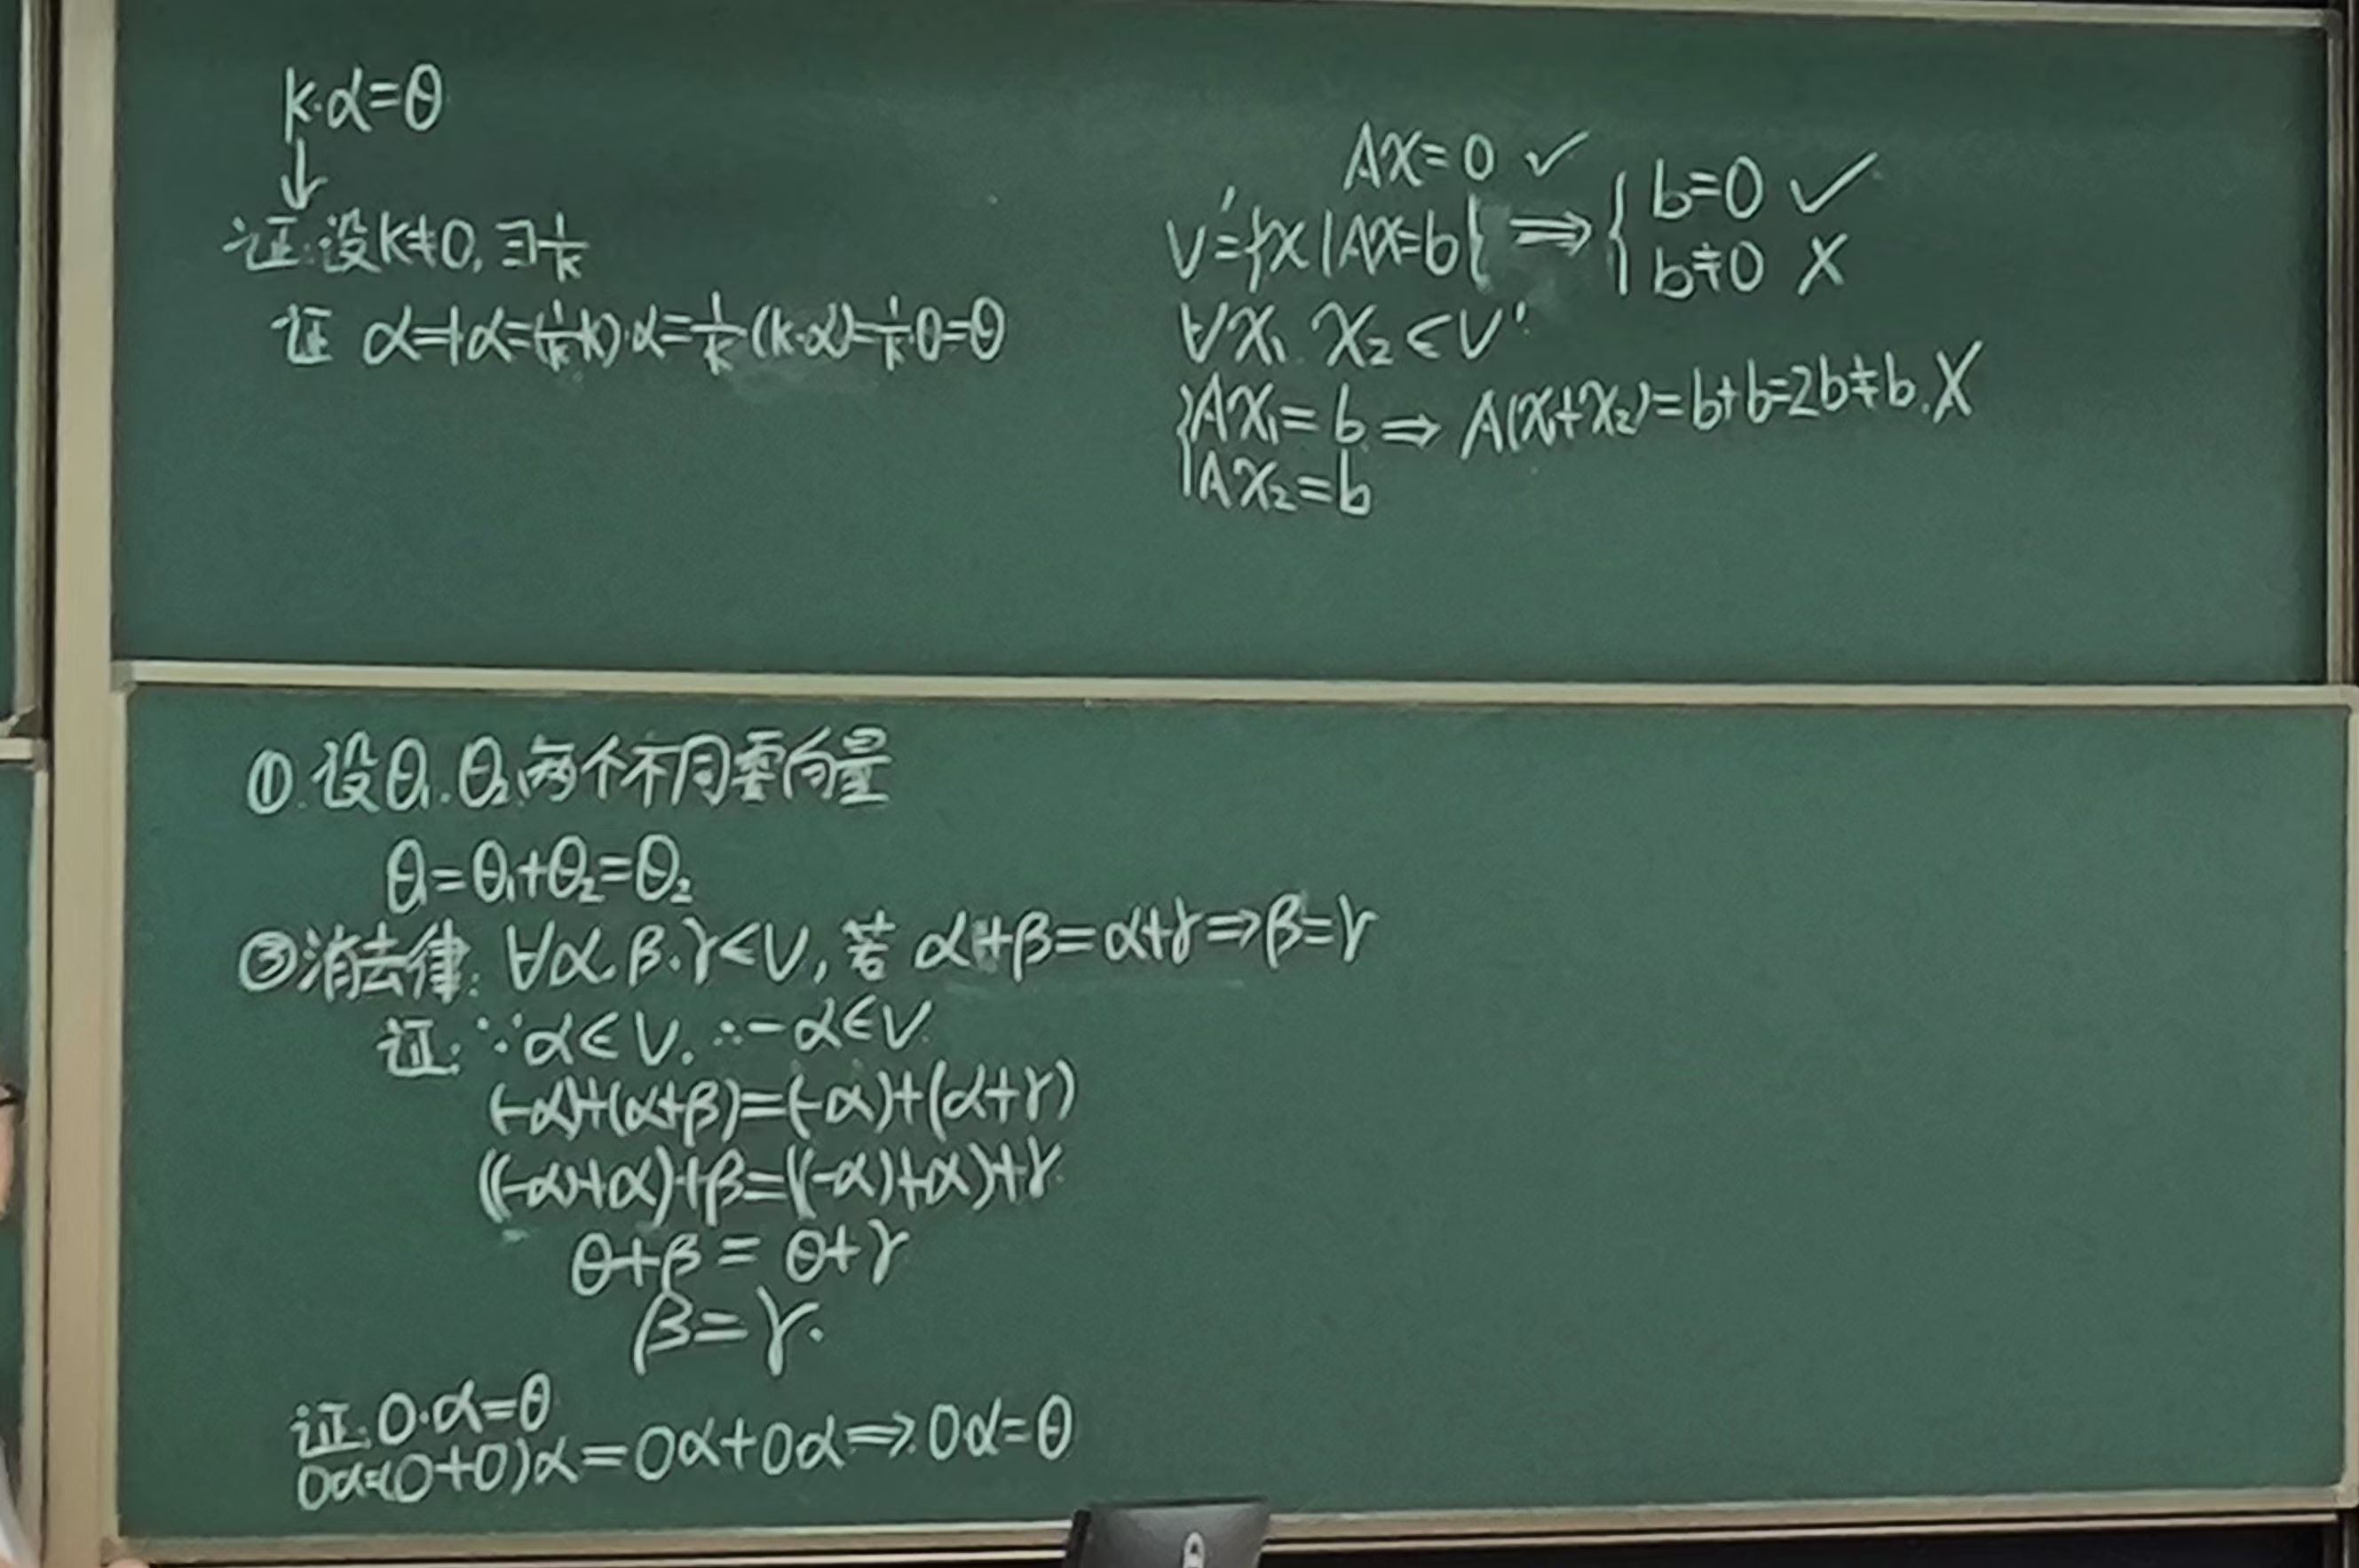 k·α=θ
↓
证:设k≠0, ∃1/k
证 α=1α=(1/k·k)·α=1/k(k·α)=1/k·θ=θ
AX=0 ✓
V'={X|AX=b} ⇒ { b=0 ✓
b≠0 ✗
∀X₁ X₂∈V'
{AX₁=b ⇒ A(X₁+X₂)=b+b=2b≠b. ✗
AX₂=b
①.设θ₁.θ₂两个不同零向量
θ₁=θ₁+θ₂=θ₂
③消去律: ∀α.β.γ∈V, 若 α+β=α+γ⇒β=γ
证: ∵α∈V. ∴-α∈V.
(-α)+(α+β)=(-α)+(α+γ)
((-α)+α)+β=((-α)+α)+γ
θ+β=θ+γ
β=γ.
证:0·α=θ
0α=(0+0)α=0α+0α⇒0α=θ